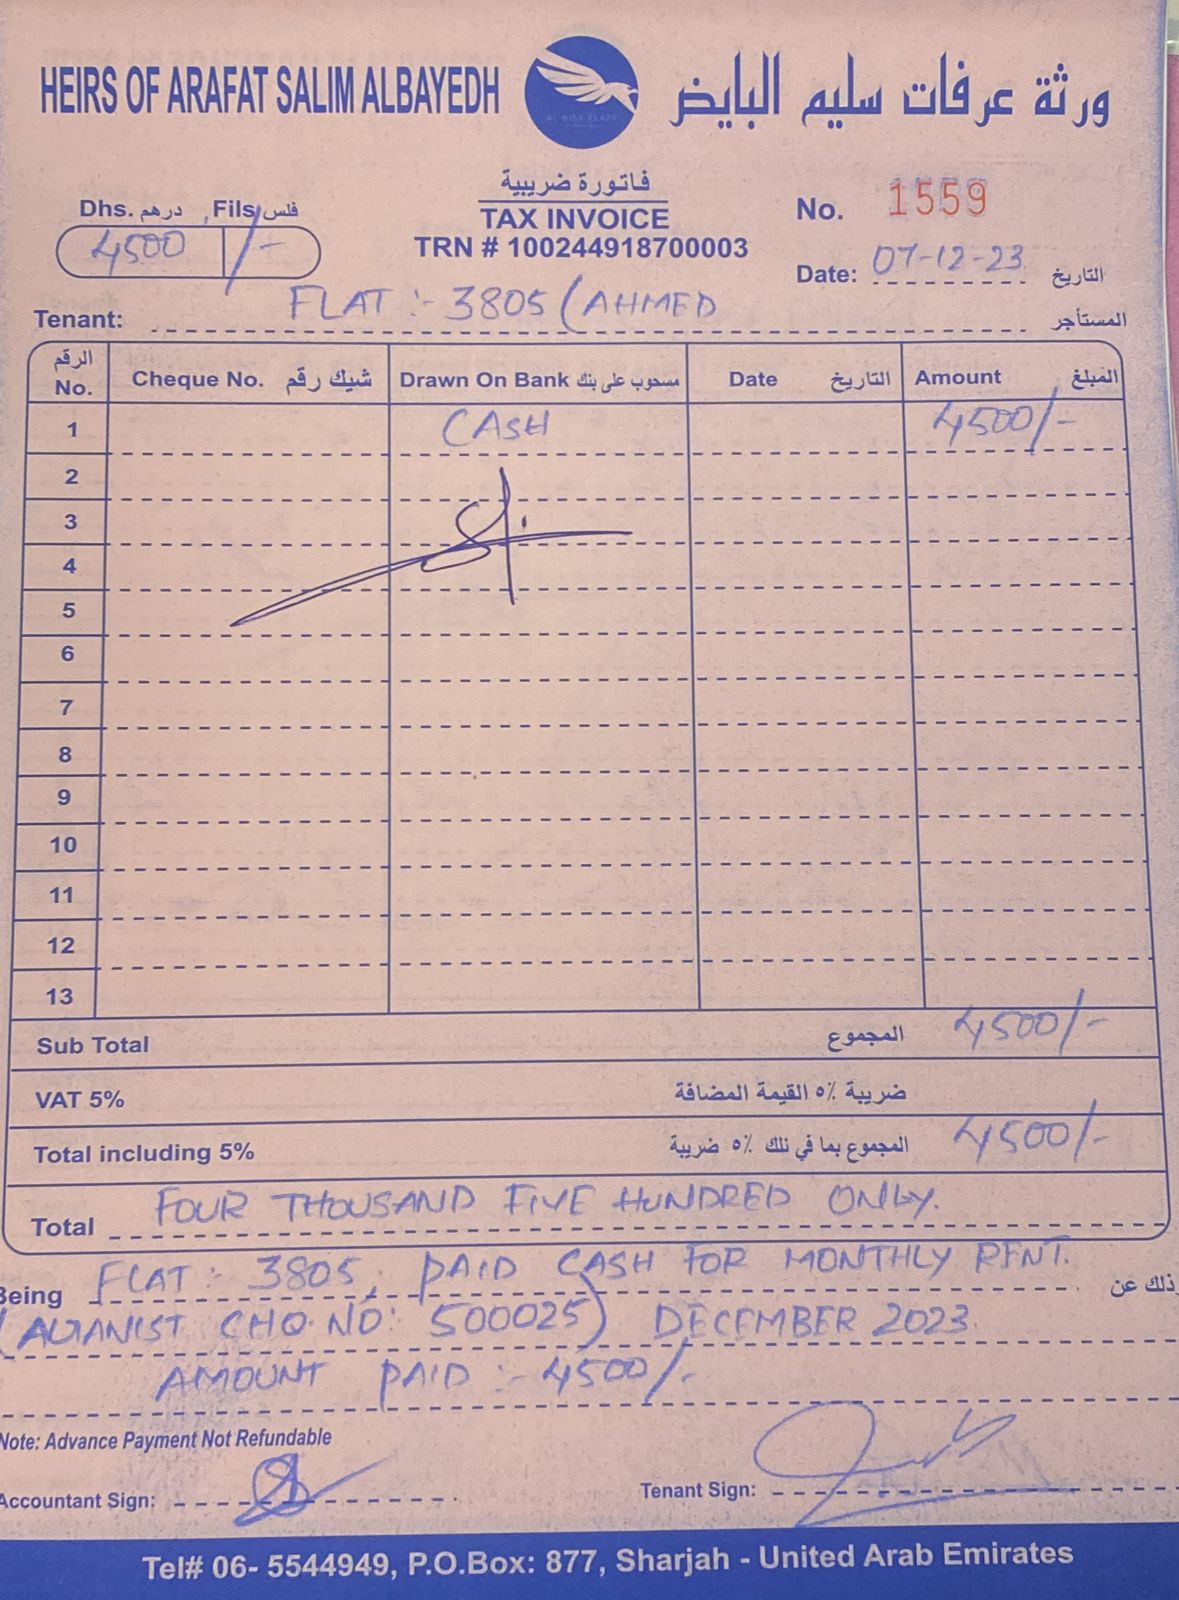 HEIRS OF ARAFAT SALIM ALBAYEDH
ورثة عرفات سليم البايض
AL NISR PLAZA
فاتورة ضريبية
TAX INVOICE
TRN # 100244918700003
Dhs. درهم , Fils فلس
4500 /-
No. 1559
Date: 07-12-23 التاريخ
Tenant: FLAT :- 3805 (AHMED المستأجر
الرقم No. Cheque No. شيك رقم Drawn On Bank مسحوب على بنك Date التاريخ Amount المبلغ
1 CASH 4500/-
2
3
4
5
6
7
8
9
10
11
12
13
Sub Total المجموع 4500/-
VAT 5% ضريبة ٥٪ القيمة المضافة
Total including 5% المجموع بما في تلك ٥٪ ضريبة 4500/-
Total FOUR THOUSAND FIVE HUNDRED ONLY.
Being FLAT :- 3805, PAID CASH FOR MONTHLY RENT. ذلك عن
(AGANIST CHQ. NO: 500025) DECEMBER 2023.
AMOUNT PAID :- 4500/-
Note: Advance Payment Not Refundable
Accountant Sign:
Tenant Sign:
Tel# 06- 5544949, P.O.Box: 877, Sharjah - United Arab Emirates